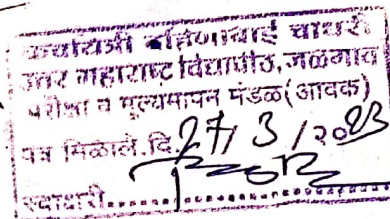 कवयित्री बहिणाबाई चौधरी
उत्तर महाराष्ट्र विद्यापीठ, जळगाव
परीक्षा व मूल्यमापन मंडळ (आवक)
पत्र मिळाले. दि. 27/3/2023
स्वाक्षरी..........